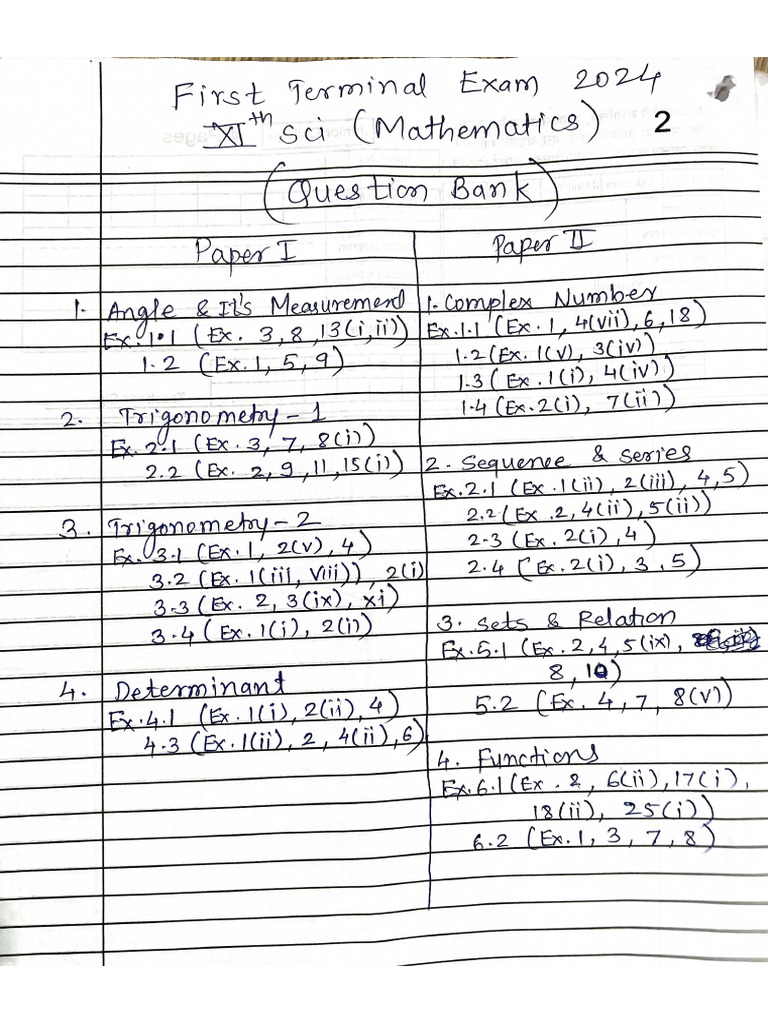 First Terminal Exam 2024
XIth Sci (Mathematics) 2
(Question Bank)
Paper I
1. Angle & It's Measurement
Ex. 1.1 (Ex. 3, 8, 13(i, ii))
1.2 (Ex. 1, 5, 9)
2. Trigonometry - 1
Ex. 2.1 (Ex. 3, 7, 8(i))
2.2 (Ex. 2, 9, 11, 15(i))
3. Trigonometry - 2
Ex. 3.1 (Ex. 1, 2(v), 4)
3.2 (Ex. 1(iii, viii)), 2(i)
3.3 (Ex. 2, 3(ix), xi)
3.4 (Ex. 1(i), 2(i))
4. Determinant
Ex. 4.1 (Ex. 1(i), 2(ii), 4)
4.3 (Ex. 1(ii), 2, 4(ii), 6)
Paper II
1. Complex Number
Ex. 1.1 (Ex. 1, 4(vii), 6, 18)
1.2 (Ex. 1(v), 3(iv))
1.3 (Ex. 1(i), 4(iv))
1.4 (Ex. 2(i), 7(ii))
2. Sequence & Series
Ex. 2.1 (Ex. 1(ii), 2(iii), 4, 5)
2.2 (Ex. 2, 4(ii), 5(ii))
2.3 (Ex. 2(i), 4)
2.4 (Ex. 2(i), 3, 5)
3. Sets & Relation
Ex. 5.1 (Ex. 2, 4, 5(ix),
8, 10)
5.2 (Ex. 4, 7, 8(v))
4. Functions
Ex. 6.1 (Ex. 2, 6(ii), 17(i),
18(ii), 25(i))
6.2 (Ex. 1, 3, 7, 8)